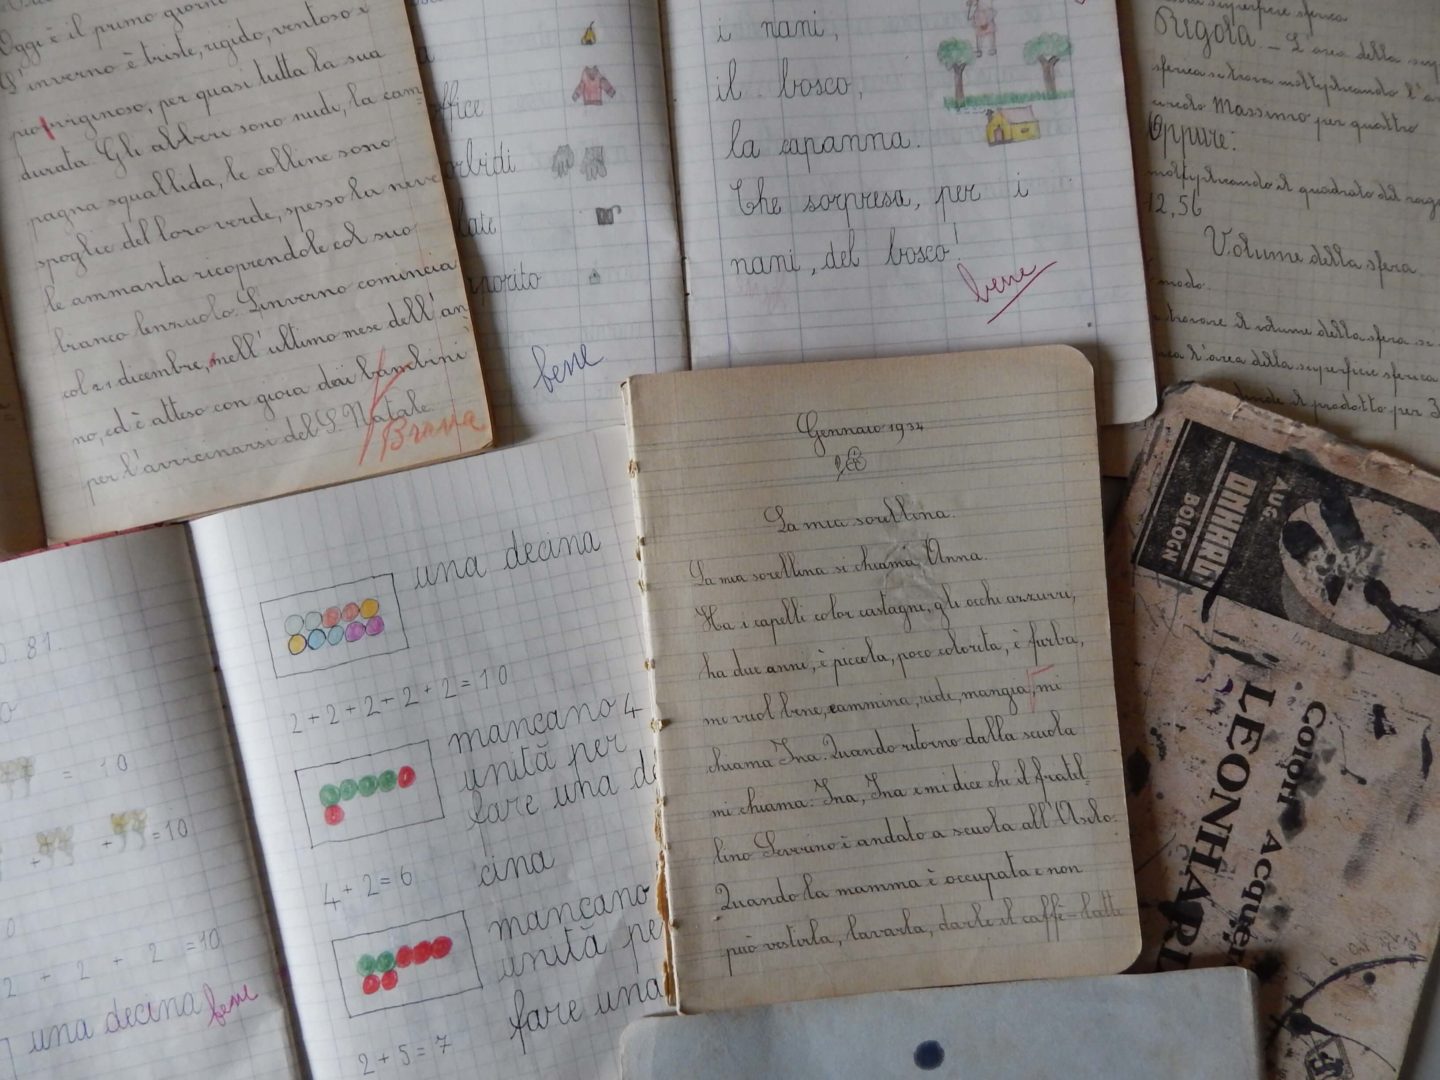 Oggi è il primo giorno
L'inverno è triste, rigido, ventoso e
piovigginoso, per quasi tutta la sua
durata. Gli alberi sono nudi, la cam=
pagna squallida, le colline sono
spoglie del loro verde, spesso la neve
le ammanta ricoprendole col suo
bianco lenzuolo. L'inverno comincia
col 21 dicembre, nell'ultimo mese dell'an
no, ed è atteso con gioia dai bambini
per l'avvicinarsi del S. Natale.
Brava
a
ffice
orbidi
late
porito
bene
i nani,
il bosco,
la capanna.
Che sorpresa, per i
nani, del bosco!
bene
superficie sferica
Regola. - L'area della
sferica si trova moltiplicando l'a
circolo massimo per quattro
Oppure:
moltiplicando il quadrato del
12,56
Volume della sfera
modo.
trovare il volume della sfera si
l'area della superficie sferica
il prodotto per 3
AUG.
LEONHARDI
BOLOGN
LEONHARDI
Colori Acque
0.81.
= 10
+ + =10
0
2 + 2 + 2 =10
una decina bene
una decina
2+2+2+2+2=10
mancano 4
unità per
fare una de
cina
4+2=6
mancano
unità pe
fare una
2+5=7
Gennaio 1934
La mia sorellina.
La mia sorellina si chiama Anna.
Ha i capelli color castagni, gli occhi azzurri,
ha due anni, è piccola, poco colorita, è furba,
mi vuol bene, cammina, ride, mangia, mi
chiama Ina. Quando ritorno dalla scuola
mi chiama: Ina, Ina e mi dice che il fratel=
lino Severino è andato a scuola all'Asilo.
Quando la mamma è occupata e non
può vestirla, lavarla, darle il caffè-latte